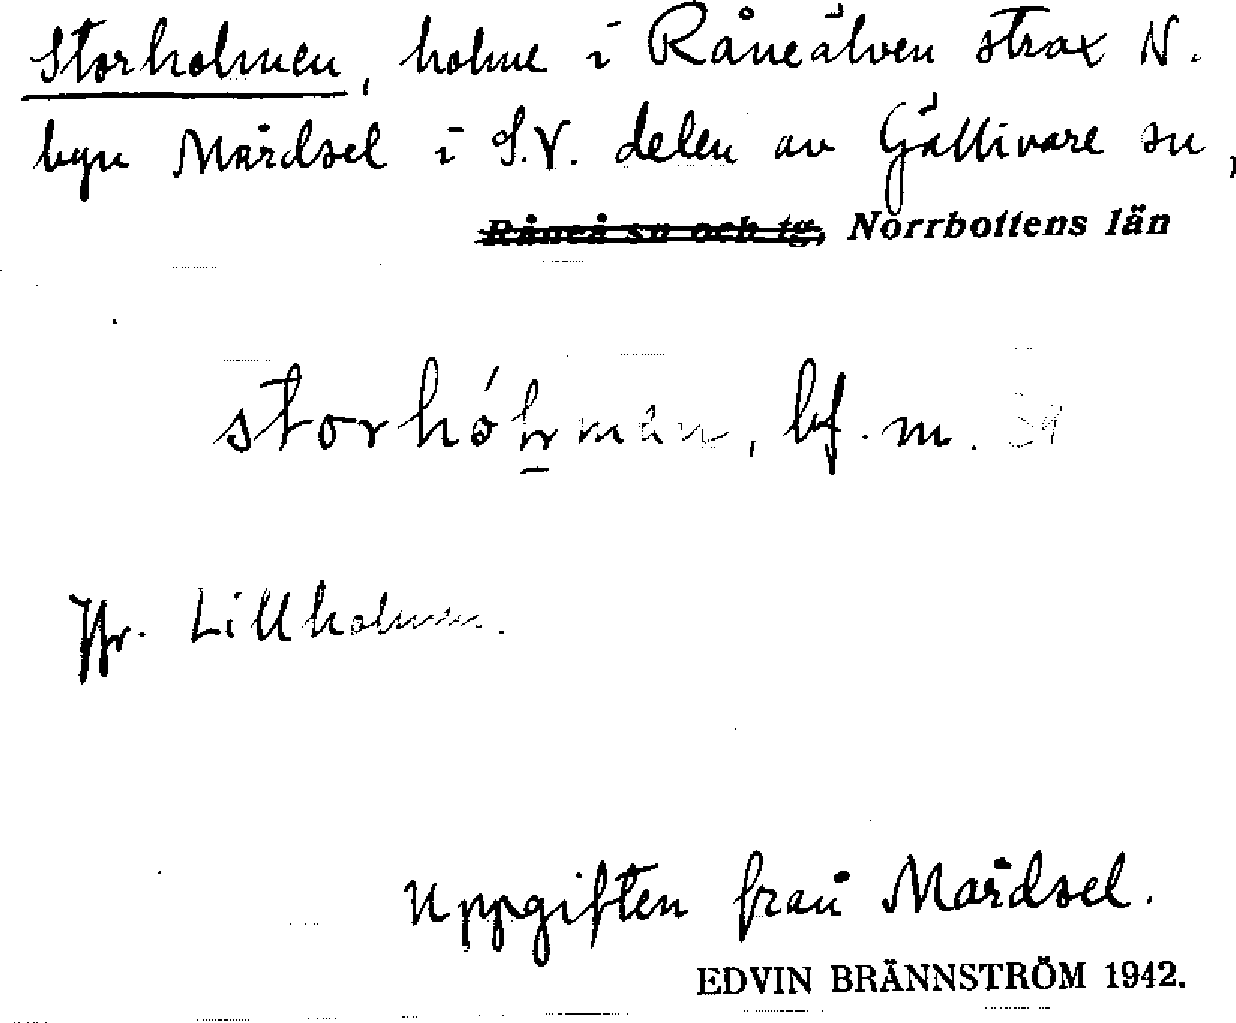 Storholmen, holme i Råneälven strax N.
byn Mårdsel i S.V. delen av Gällivare sn,
Råneå sn och tg, Norrbottens län
bf. m.
Jfr. Lillholmen.
Uppgiften från Mårdsel.
EDVIN BRÄNNSTRÖM 1942.